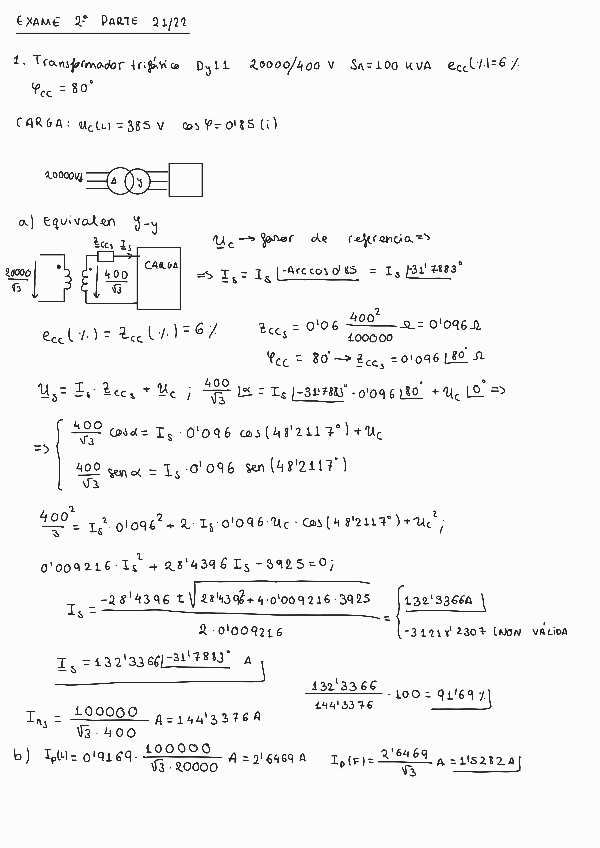 EXAME 2ª PARTE 21/22
1. Transformador trifásico Dy11 20000/400 V Sn=100 KVA ecc(%)=6%
φcc = 80°
CARGA: Uc(L) = 385 V cos φ = 0'85 (i)
20000V
Δ
Y
a) Equivalen Y-y
Uc → fasor de referencia =>
Zccs Is
20000/√3
400/√3
CARGA
=> Is = Is ∠-Arccos 0'85 = Is ∠-31'7883°
ecc(%) = Zcc(%) = 6%
Zccs = 0'06 400²/100000 Ω = 0'096 Ω
φcc = 80° → Zccs = 0'096 ∠80° Ω
Us = Is · Zccs + Uc ; 400/√3 ∠α = Is ∠-31'7883° · 0'096 ∠80° + Uc ∠0° =>
=> { 400/√3 cosα = Is · 0'096 cos(48'2117°) + Uc
400/√3 senα = Is · 0'096 sen(48'2117°)
400²/3 = Is² · 0'096² + 2 · Is · 0'096 · Uc · cos(48'2117°) + Uc² ;
0'009216 · Is² + 28'4396 Is - 3925 = 0;
Is = (-28'4396 ± √(28'4396² + 4 · 0'009216 · 3925)) / (2 · 0'009216) = { 132'3366A
-3121'2307 (NON VÁLIDA
Is = 132'3366 ∠-31'7883° A
132'3366/144'3376 · 100 = 91'69%
Ins = 100000/(√3 · 400) A = 144'3376 A
b) Ip(L) = 0'9169 · 100000/(√3 · 20000) A = 2'6469 A Ip(F) = 2'6469/√3 A = 1'5282 A